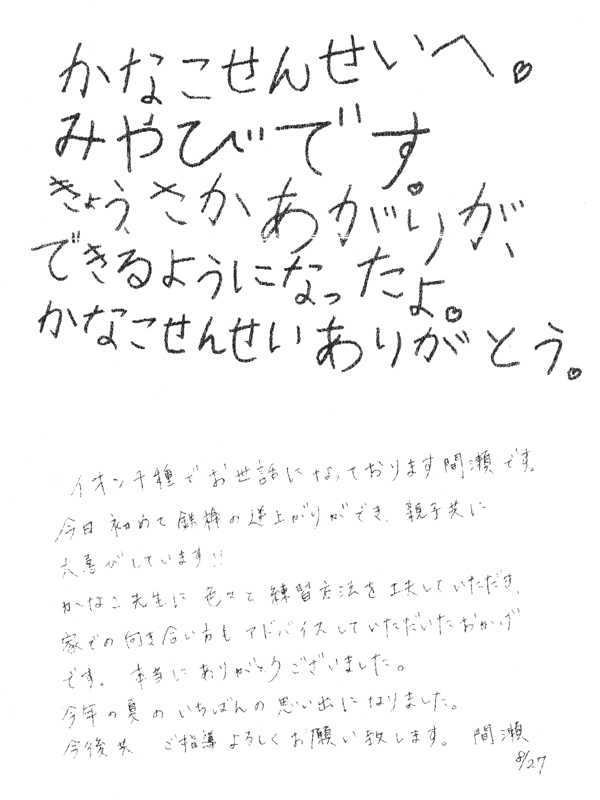 かなこせんせいへ♡。
みやびです。
きょう、さかあがりが、
できるようになったよ。♡
かなこせんせいありがとう。
イオン千種でお世話になっております間瀬です。
今日初めて鉄棒の逆上がりができ、親子共に
大喜びしています!!
かなこ先生に色々と練習方法を工夫していただき、
家での向き合い方もアドバイスしていただいたおかげ
です。本当にありがとうございました。
今年の夏のいちばんの思い出になりました。
今後共 ご指導よろしくお願い致します。 間瀬
8/27